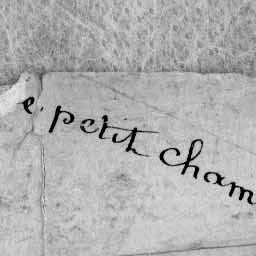 e. petit cham